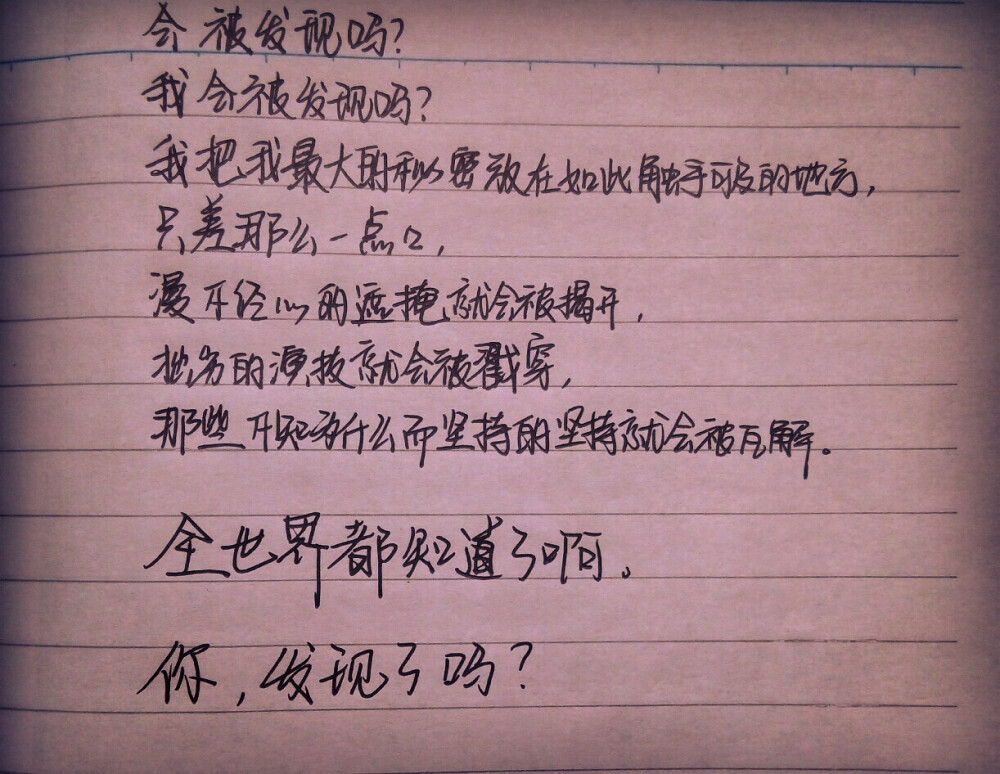 会被发现吗?
我会被发现吗?
我把我最大的秘密放在如此触手可及的地方,
只差那么一点点,
漫不经心的遮掩就会被揭开,
拙劣的演技就会被戳穿,
那些不知为什么而坚持的坚持就会被瓦解。
全世界都知道了啊。
你,发现了吗?